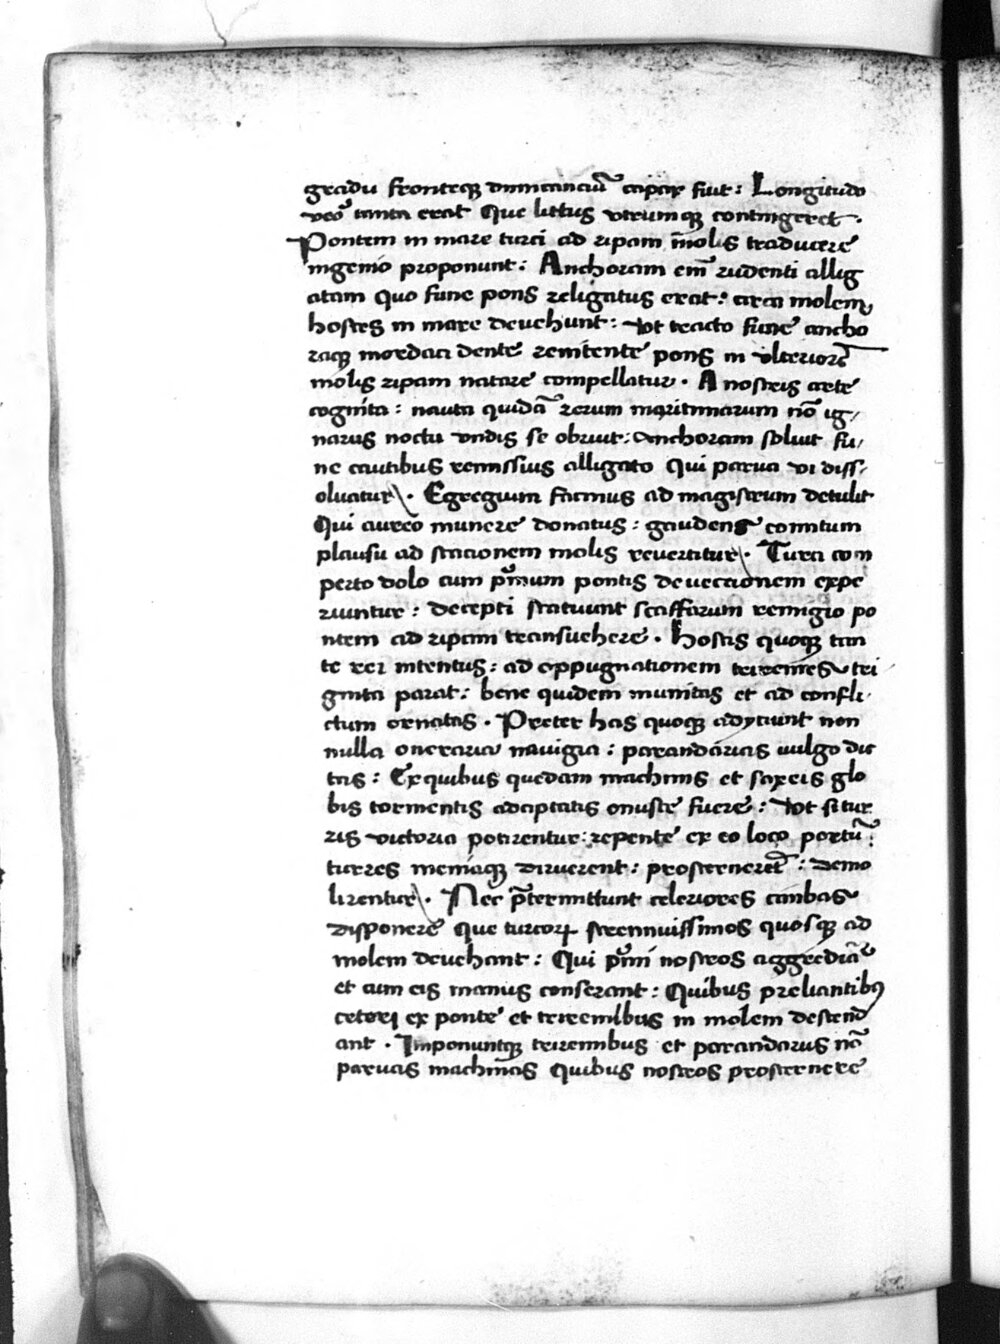 gradu fronteqꝫ dimicanciū capax fiut : Longitudo
veō tanta erat Que littus vtrumqꝫ contingeret .
Pontem in mare turci ad ripam molis traducere
ingenio proponunt : Anchoram em̄ rudenti allig
atam quo fune pons religatus erat : circa molem
hostes in mare deuehunt : vt tracto fune ancho
raqꝫ mordaci dente renitente pons in vlteriorē
molis ripam natare compellatur . A nostris arte
cognita : nauta quidā rerum maritimarum nō ig/
narus noctu vndis se obruit : Anchoram soluit fu/
ne cautibus remissius alligato Qui parua vi diss/
oluatur . Egregium facinus ad magistrum detulit
Qui aureo munere donatus : gaudens comitum
plausu ad stationem molis reuertitur . Turci com
perto dolo cum pͥmum pontis deuectionem expe
riuntur : decepti statuunt scaffarum remigio po
ntem ad ripam transuehere . Hostis quoqꝫ tan
te rei intentus : ad oppugnationem triremes tri
ginta parat : bene quidem munitas et ad confli
ctum ornatas . Preter has quoqꝫ adyciunt non
nulla oneraria nauigia : parandarias uulgo dic
tas : Ex quibus quedam machinis et saxeis glo
bis tormentis adaptatis onuste fuere : vt si tur
ris victoria potirentur : repente ex eo loco portū :
turres meniaqꝫ diruerent : prosterneret̄ : demo
lirentur . Nec p̄termittunt celeriores cimbas
disponere Que turcoꝝ strennuissimos quosqꝫ ad
molem deuehant : Qui pͥmi nostros aggrediāt
et cum eis manus conserant : Quibus preliantibꝰ
ceteri ex ponte et triremibus in molem descend
ant . Imponuntqꝫ triremibus et parandariis nō
paruas machinas Quibus nostros prosternere